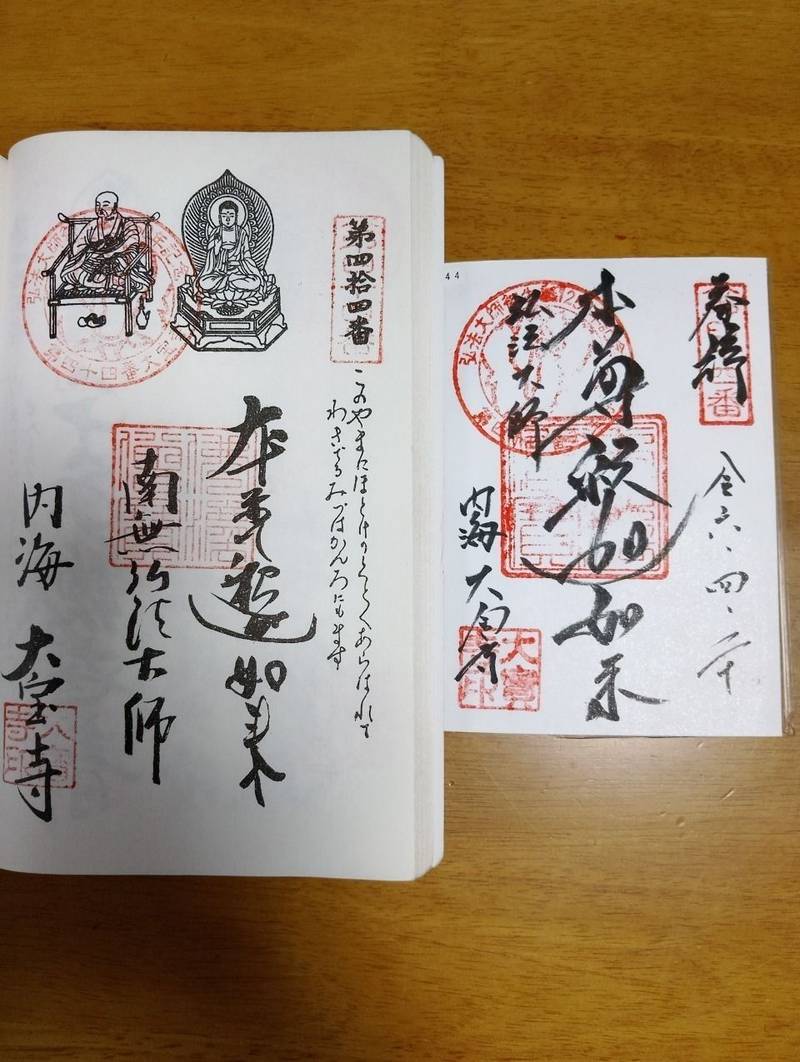 第四拾四番
このやまにほとけ あらはれて
みづはかんろにもます
本尊釈迦如来
南無弘法大師
内海 大宝寺
弘法大師
44
奉拝
令六、四、二十
本尊釈迦如来
弘法大師
内海 大宝寺
弘法大師
大寶